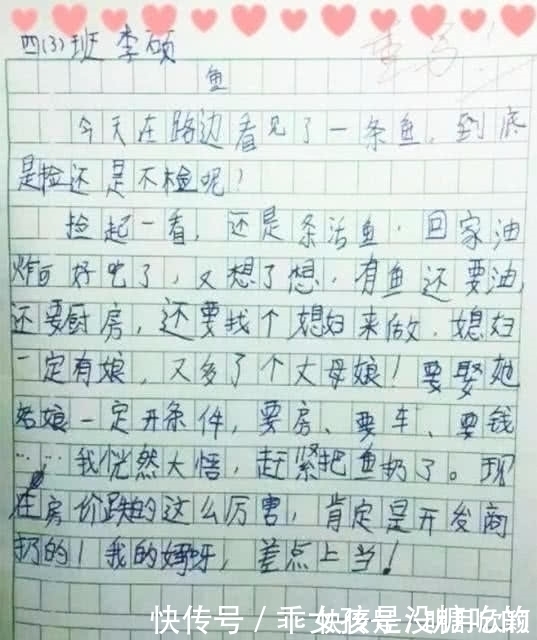 四(3)班 李硕
重写
鱼
今天在路边看见了一条鱼,到底
是捡还是不检呢!
捡起一看,还是条活鱼.回家油
炸可好吃了,又想了想.有鱼还要油,
还要厨房,还要找个媳妇来做.媳妇
一定有娘,又多了个丈母娘!要娶她
姑娘一定开条件,要房、要车、要钱
……我恍然大悟,赶紧把鱼扔了。现
在房价跌的这么厉害,肯定是开发商
扔的!我的妈呀,差点上当!
快传号/乖女孩是没糖吃的